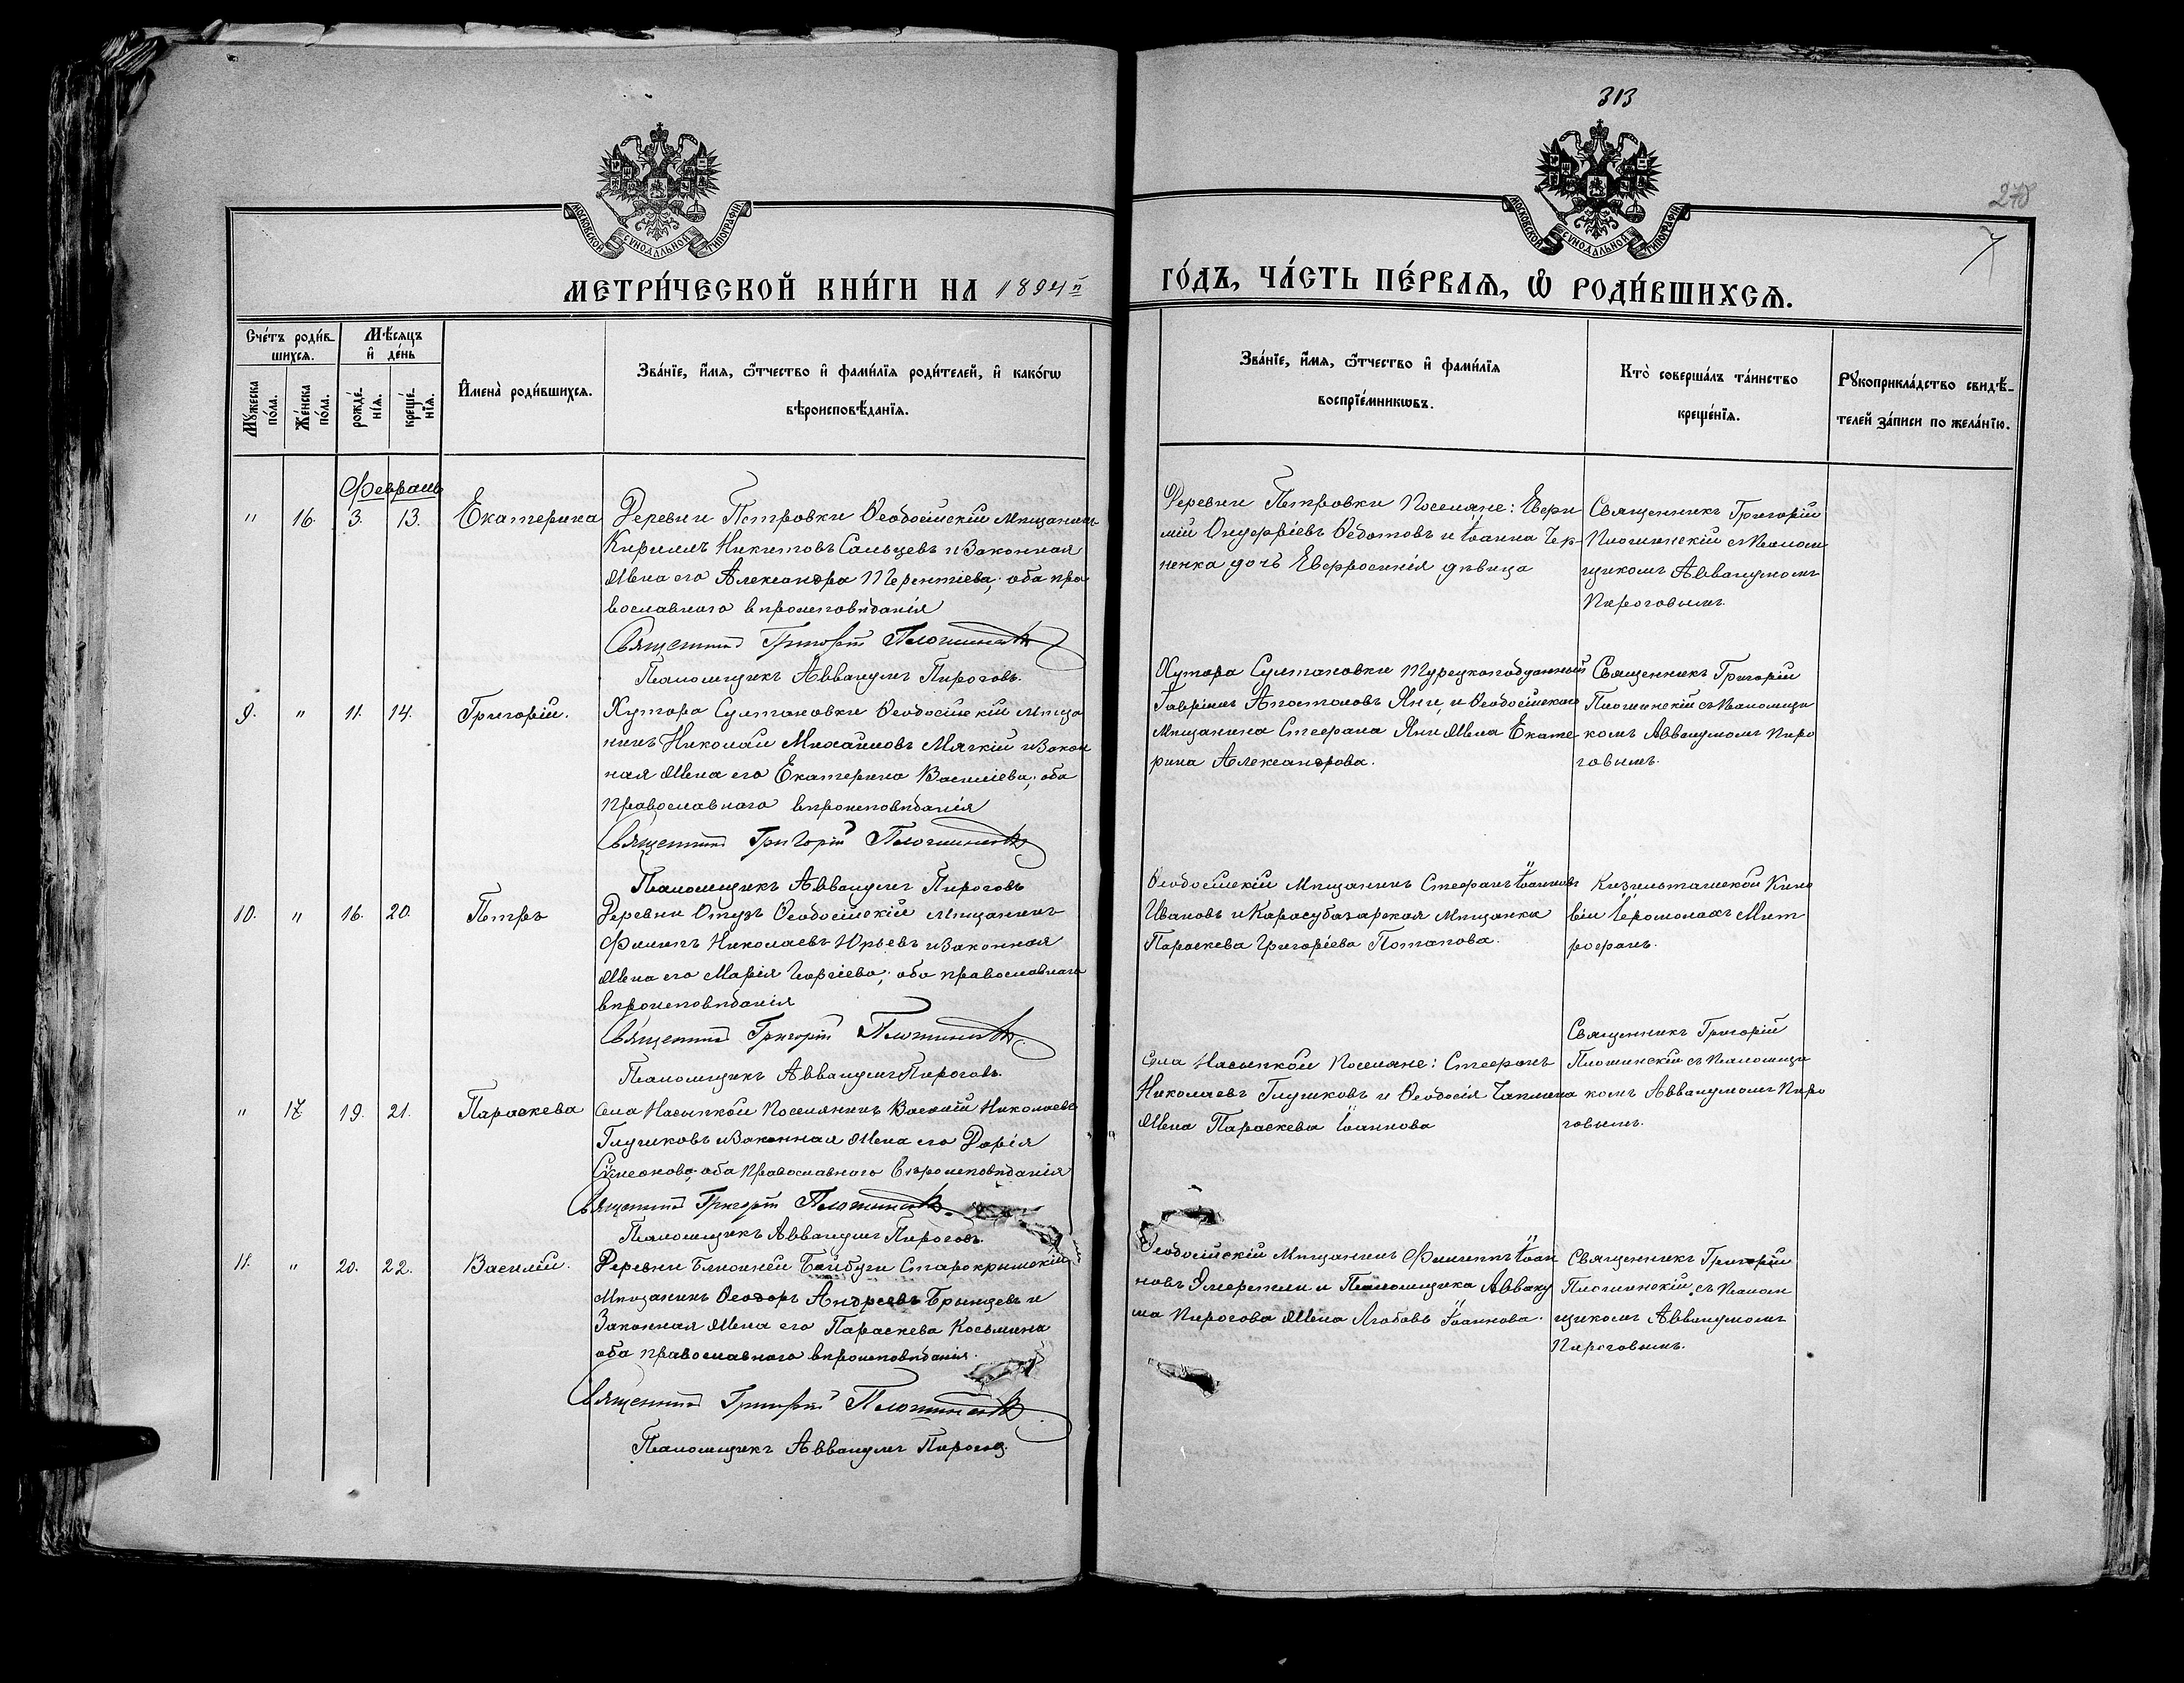 313
270
7
МОСКОВСКОЙ СѴНОДАЛЬНОЙ ТИПОГРАФІИ
МОСКОВСКОЙ СѴНОДАЛЬНОЙ ТИПОГРАФІИ
МЕТРИ́ЧЕСКОЙ КНИ́ГИ НА 1894й
ГО́ДЪ, ЧА́СТЬ ПЕ́РВАѦ, Ѽ РОДИ́ВШИХСѦ.
Сче́тъ роди́в-
шихсѧ.
Мꙋжеска
по́ла.
Же́нска
по́ла.
Мѣ́сѧцъ
и҆ де́нь
рожде́-
нїѧ.
креще́-
нїѧ.
И҆мена̀ роди́вшихсѧ.
Зва́нїе, и҆́мѧ, ѻ҆́тчество и҆ фами́лїѧ роди́телей, и҆ како́гѡ
вѣроисповѣ́данїѧ.
Зва́нїе, и҆́мѧ, ѻ҆́тчество и҆ фами́лїѧ
воспрїе́мникѡвъ.
Кто̀ соверша́лъ та́инство
креще́нїѧ.
Рꙋкоприкла́дство свидѣ́-
телей за́писи по жела́нїю.
Февраль
" 16. 3. 13. Екатерина
Деревни Петровки Ѳеодосійскій Мѣщанинъ
Кириллъ Никитовъ Сальцевъ и Законная
Жена его Александра Терентіева; оба пра
вославнаго вѣроисповѣданія
Священникъ Григорій Плошинскій
Псаломщикъ Аввакумъ Пироговъ.
Деревни Петровки Поселяне: Евѳи
мій Онуфріевъ Ѳедотовъ и Іоанна Чер-
ненка дочь Евфросинія дѣвица
Священникъ Григорій
Плошинскій съ Псалом
щикомъ Аввакумомъ
Пироговымъ.
9. " 11. 14. Григорій.
Хутора Султановки Ѳеодосійскій Мѣща
нинъ Николай Михаиловъ Мягкій и Закон
ная Жена его Екатерина Василіева; оба
Православнаго вѣроисповѣданія
Священникъ Григорій Плошинскій
Псаломщикъ Аввакумъ Пироговъ
Хутора Султановки Турецкоподданный
Гавріилъ Апостоловъ Яни, и Ѳеодосійскаго
Мѣщанина Стефана Яни Жена Екате
рина Александрова.
Священникъ Григорій
Плошинскій съ Псаломщи
комъ Аввакумомъ Пиро
говымъ.
10. " 16. 20. Петръ
Деревни Отузъ Ѳеодосійскій Мѣщанинъ
Филипъ Николаевъ Юрьевъ и Законная
Жена его Марія Георгіева; оба православнаго
вѣроисповѣданія
Священникъ Григорій Плошинскій
Псаломщикъ Аввакумъ Пироговъ.
Ѳеодосійскій Мѣщанинъ Стефанъ Іоанновъ
Ивановъ и Карасубазарская Мѣщанка
Параскева Григоріева Потапова.
Кизильташской Кино
віи Іеромонахъ Мит
рофанъ.
" 17. 19. 21. Параскева
Села Насыпкой Поселянинъ Василій Николаевъ
Глушковъ и Законная Жена его Дарія
Сѵмеонова; оба Православнаго вѣроисповѣданія
Священникъ Григорій Плошинскій
Псаломщикъ Аввакумъ Пироговъ.
Села Насыпкой Поселяне: Стефанъ
Николаевъ Глушковъ и Ѳеодосія Чаплина
Жена Параскева Іоаннова
Священникъ Григорій
Плошинскій съ Псаломщи
комъ Аввакумомъ Пиро
говымъ.
11. " 20. 22. Василій.
Деревни Ближней Байбуги Старокрымскій
Мѣщанинъ Ѳеодоръ Андреевъ Брынцевъ и
Законная Жена его Параскева Косьмина
оба православнаго вѣроисповѣданія.
Священникъ Григорій Плошинскій
Псаломщикъ Аввакумъ Пироговъ.
Ѳеодосійскій Мѣщанинъ Филиппъ Іоан
новъ и Псаломщика Авваку
ма Пирогова Жена Любовь Іоаннова.
Священникъ Григорій
Плошинскій съ Псалом
щикомъ Аввакумомъ
Пироговымъ.